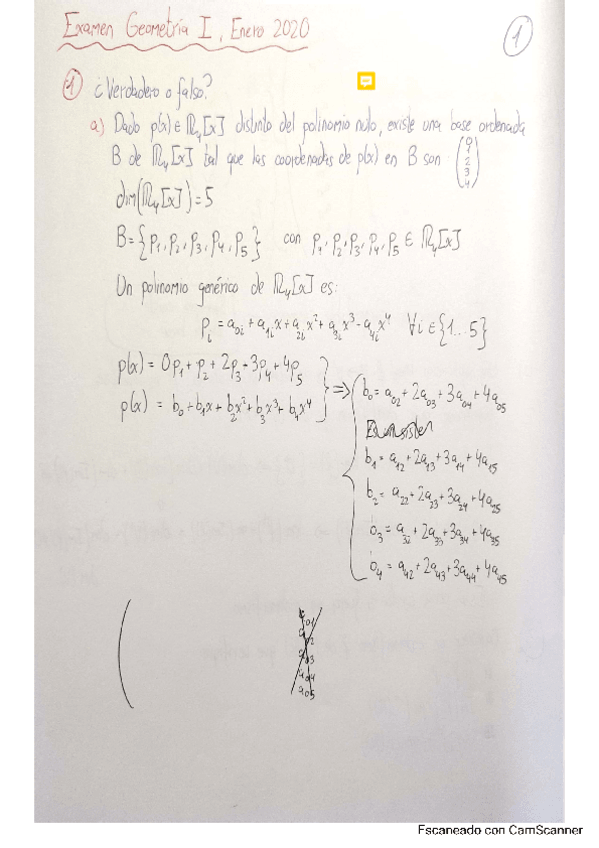 Examen Geometría I, Enero 2020
1
1 ¿Verdadero o falso?
a) Dado p(x) ∈ ℝ₄[x] distinto del polinomio nulo, existe una base ordenada
B de ℝ₄[x] tal que las coordenadas de p(x) en B son (0 1 2 3 4)
dim(ℝ₄[x]) = 5
B = {p₁, p₂, p₃, p₄, p₅} con p₁, p₂, p₃, p₄, p₅ ∈ ℝ₄[x]
Un polinomio genérico de ℝ₄[x] es:
pᵢ = a₀ᵢ + a₁ᵢx + a₂ᵢx² + a₃ᵢx³ - a₄ᵢx⁴ ∀i ∈ {1...5}
p(x) = 0p₁ + p₂ + 2p₃ + 3p₄ + 4p₅
p(x) = b₀ + b₁x + b₂x² + b₃x³ + b₄x⁴
⇒ b₀ = a₀₂ + 2a₀₃ + 3a₀₄ + 4a₀₅
b₁ = a₁₂ + 2a₁₃ + 3a₁₄ + 4a₁₅
b₂ = a₂₂ + 2a₂₃ + 3a₂₄ + 4a₂₅
b₃ = a₃₂ + 2a₃₃ + 3a₃₄ + 4a₃₅
b₄ = a₄₂ + 2a₄₃ + 3a₄₄ + 4a₄₅
Escaneado con CamScanner